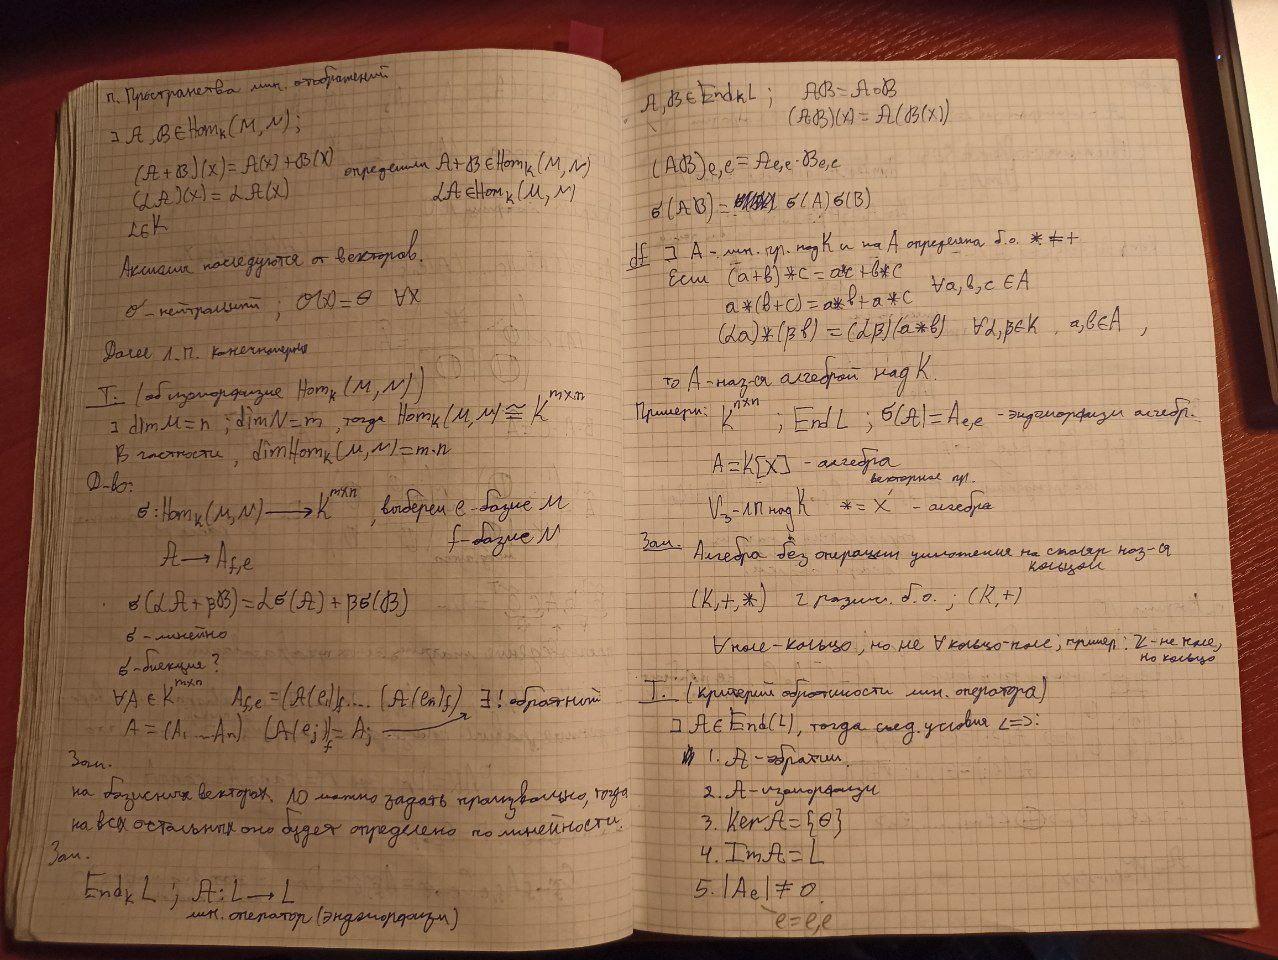 п. Пространства лин. отображений
∃ A, B ∈ Hom_K(M, N);
(A + B)(x) = A(x) + B(x) определили A + B ∈ Hom_K(M, N)
(αA)(x) = αA(x) αA ∈ Hom_K(M, N)
α ∈ K
Аксиомы последуются от векторов.
O - нейтральный ; O(x) = θ ∀x
Далее л.п. конечномерны
Т: (об изоморфизме Hom_K(M, N))
∃ dim M = n ; dim N = m , тогда Hom_K(M, N) ≅ K^{m×n}
В частности , dim Hom_K(M, N) = m·n
Д-во:
σ: Hom_K(M, N) ⟶ K^{m×n} , выберем e - базис M
A → A_{f,e} f - базис N
σ(αA + βB) = ασ(A) + βσ(B)
σ - линейно
σ - биекция ?
∀A ∈ K^{m×n} A_{f,e} = (A(e_1)_f ... (A(e_n)_f) ∃! обратный
A = (A_1 ... A_n) (A(e_j))_f = A_j
Зам.
на базисных векторах ЛО можно задать произвольно, тогда
на всех остальных оно будет определено по линейности.
Зам.
End_K L ; A: L → L
лин. оператор (эндоморфизм)
A, B ∈ End_K L ; AB = A∘B
(AB)(x) = A(B(x))
(AB)_{e,e} = A_{e,e} · B_{e,e}
σ(AB) = σ(A)σ(B)
df ∃ A - лин. пр. над K и на A определена б.о. * ≠ +
Если (a+b)*c = a*c + b*c
a*(b+c) = a*b + a*c ∀a, b, c ∈ A
(αa)*(βb) = (αβ)(a*b) ∀α, β ∈ K , a, b ∈ A ,
то A - наз-ся алгеброй над K.
Примеры: K^{n×n} ; End L ; σ(A) = A_{e,e} - эндоморфизм алгебр.
A = K[x] - алгебра
векторное пр.
V_3 - лп над K * = × - алгебра
Зам. Алгебра без операции умножения на скаляр наз-ся
кольцом
(K, +, *) 2 различ. б.о. ; (K, +)
∀ поле - кольцо, но не ∀ кольцо - поле ; пример : ℤ - не поле,
но кольцо
Т. (критерий обратимости лин. оператора)
∃ A ∈ End(L), тогда след. условия <=>:
1. A - обратим.
2. A - изоморфизм
3. Ker A = {θ}
4. Im A = L
5. |A_e| ≠ 0.
e = e,e